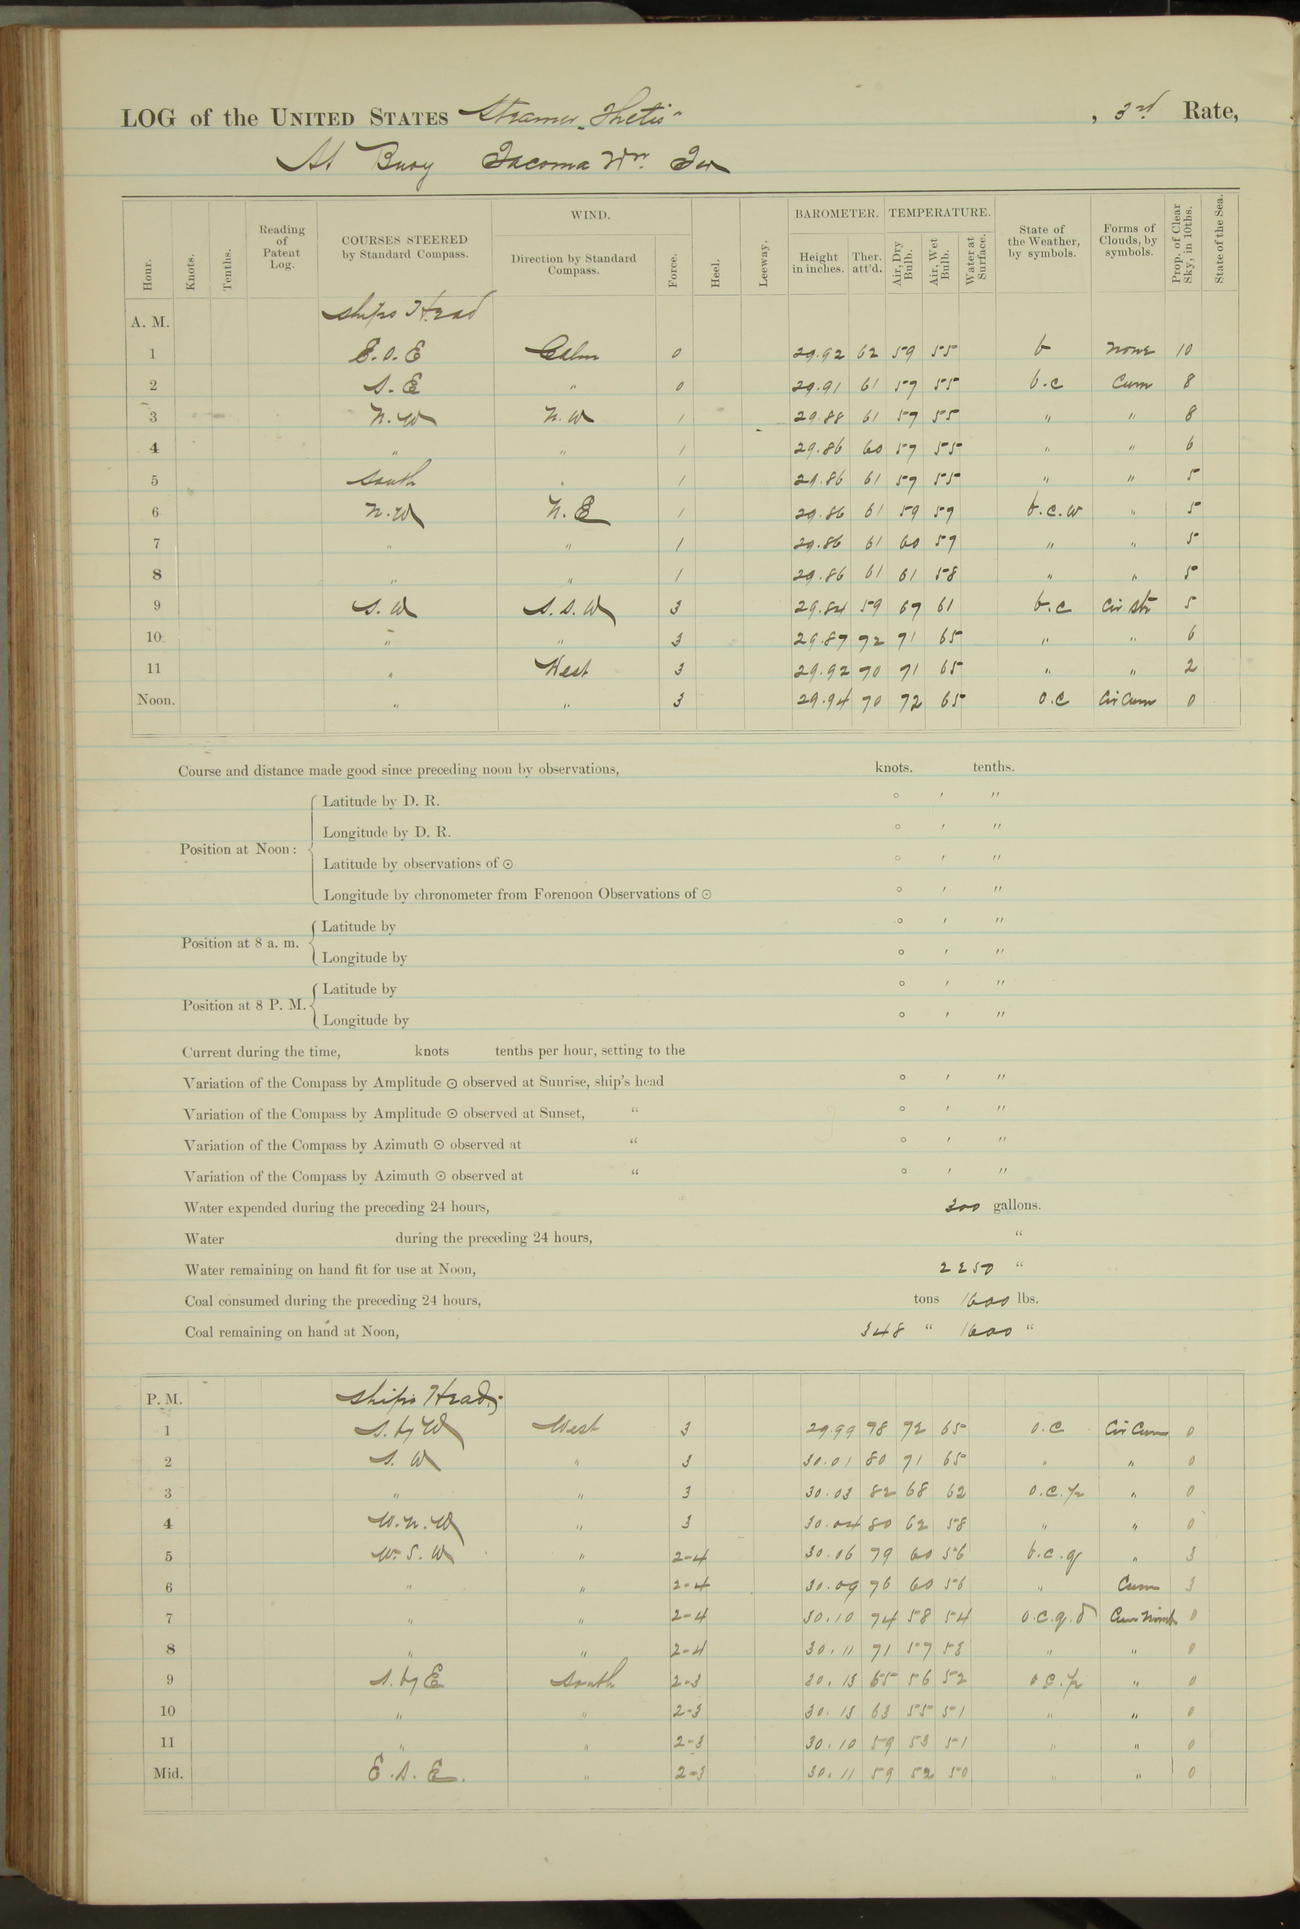 LOG of the UNITED STATES Steamer "Thetis" , 3rd Rate,
At Buoy Tacoma Wn Ter
Hour. Knots. Tenths. Reading of Patent Log. COURSES STEERED by Standard Compass. WIND. Direction by Standard Compass. Force. Heel. Leeway. BAROMETER. Height in inches. Ther. att'd. TEMPERATURE. Air, Dry Bulb. Air, Wet Bulb. Water at Surface. State of the Weather, by symbols. Forms of Clouds, by symbols. Prop. of Clear Sky, in 10ths. State of the Sea.
A. M. Ships Head
1 E.S.E Calm 0 29.92 62 59 55 b none 10
2 S.E " 0 29.91 61 57 55 b.c Cum 8
3 N.W N.W 1 29.88 61 57 55 " " 8
4 " " 1 29.86 60 57 55 " " 6
5 South " 1 29.86 61 57 55 " " 5
6 N.W N.E 1 29.86 61 59 57 b.c.w " 5
7 " " 1 29.86 61 60 57 " " 5
8 " " 1 29.86 61 61 58 " " 5
9 S.W S.S.W 3 29.84 59 67 61 b.c Cir Str 5
10 " " 3 29.87 72 71 65 " " 6
11 " West 3 29.92 70 71 65 " " 2
Noon. " " 3 29.94 70 72 65 o.c Cir Cum 0
Course and distance made good since preceding noon by observations, knots. tenths.
Position at Noon:
Latitude by D. R. ° ′ ″
Longitude by D. R. ° ′ ″
Latitude by observations of ⊙ ° ′ ″
Longitude by chronometer from Forenoon Observations of ⊙ ° ′ ″
Position at 8 a. m.
Latitude by ° ′ ″
Longitude by ° ′ ″
Position at 8 P. M.
Latitude by ° ′ ″
Longitude by ° ′ ″
Current during the time, knots tenths per hour, setting to the
Variation of the Compass by Amplitude ⊙ observed at Sunrise, ship's head ° ′ ″
Variation of the Compass by Amplitude ⊙ observed at Sunset, " ° ′ ″
Variation of the Compass by Azimuth ⊙ observed at " ° ′ ″
Variation of the Compass by Azimuth ⊙ observed at " ° ′ ″
Water expended during the preceding 24 hours, 300 gallons.
Water during the preceding 24 hours, "
Water remaining on hand fit for use at Noon, 2250 "
Coal consumed during the preceding 24 hours, tons 1600 lbs.
Coal remaining on hand at Noon, 348 " 1600 "
P. M. Ships Head
1 S. by W West 3 29.99 78 72 65 o.c Cir Cum 0
2 S. W " 3 30.01 80 71 65 " " 0
3 " " 3 30.03 82 68 62 o.c.p " 0
4 W.N.W " 3 30.04 80 62 58 " " 0
5 W.S.W " 2-4 30.06 79 60 56 b.c.q " 3
6 " " 2-4 30.09 76 60 56 " Cum 3
7 " " 2-4 30.10 74 58 54 o.c.q.d Cum Nimb 0
8 " " 2-4 30.11 71 57 53 " " 0
9 S. by E South 2-3 30.13 65 56 52 o.c.p " 0
10 " " 2-3 30.13 63 55 51 " " 0
11 " " 2-3 30.10 59 53 51 " " 0
Mid. E.S.E. " 2-3 30.11 59 52 50 " " 0